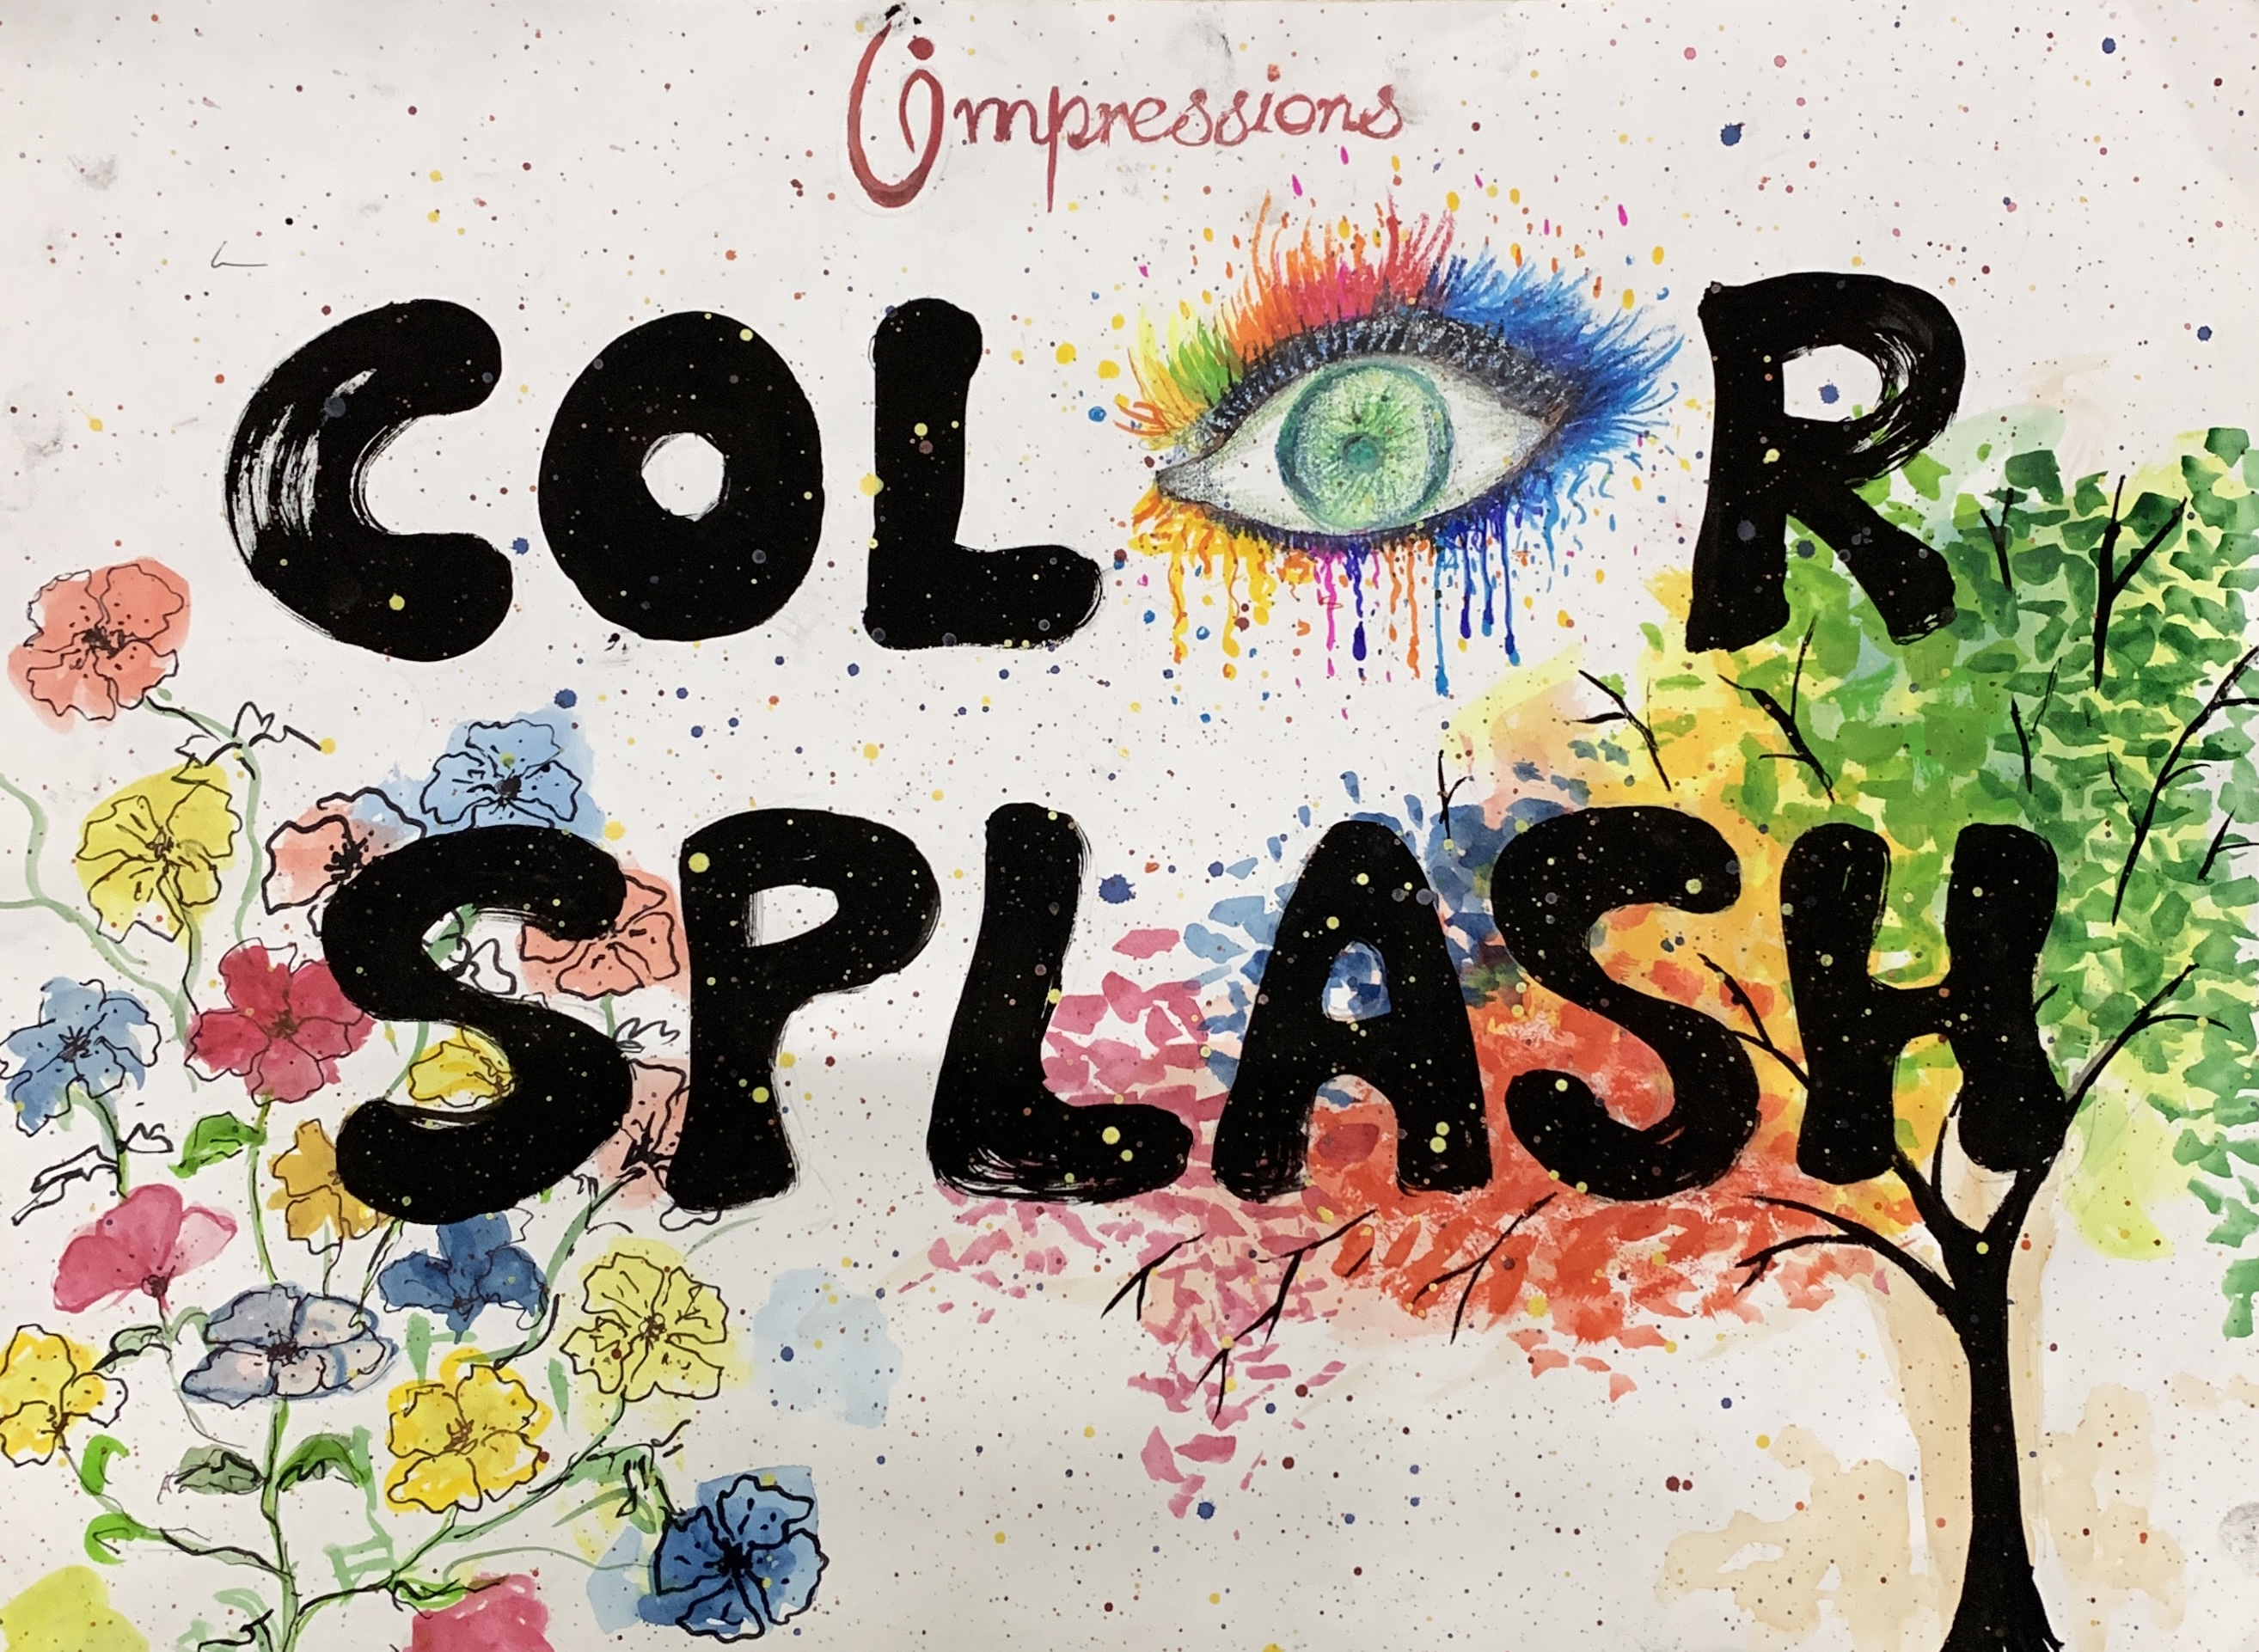 impressions
COLOR
SPLASH